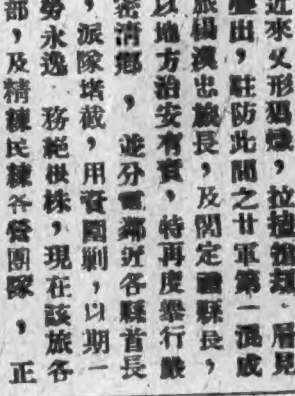 近來又形猖獗，拉擄頻頻，層見
疊出，駐防此間之廿軍第一混成
旅楊漢忠旅長，及閻定禮縣長，
以地方治安有責，特再度舉行嚴
密清鄉，並分電鄰近各縣首長
，派隊堵截，用資圍剿，以期一
勞永逸　務絕根株，現在該旅各
部，及精練民練各營團隊，正